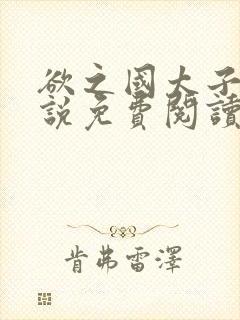 欲之國大子
說免費閱讀
肯弗雷澤